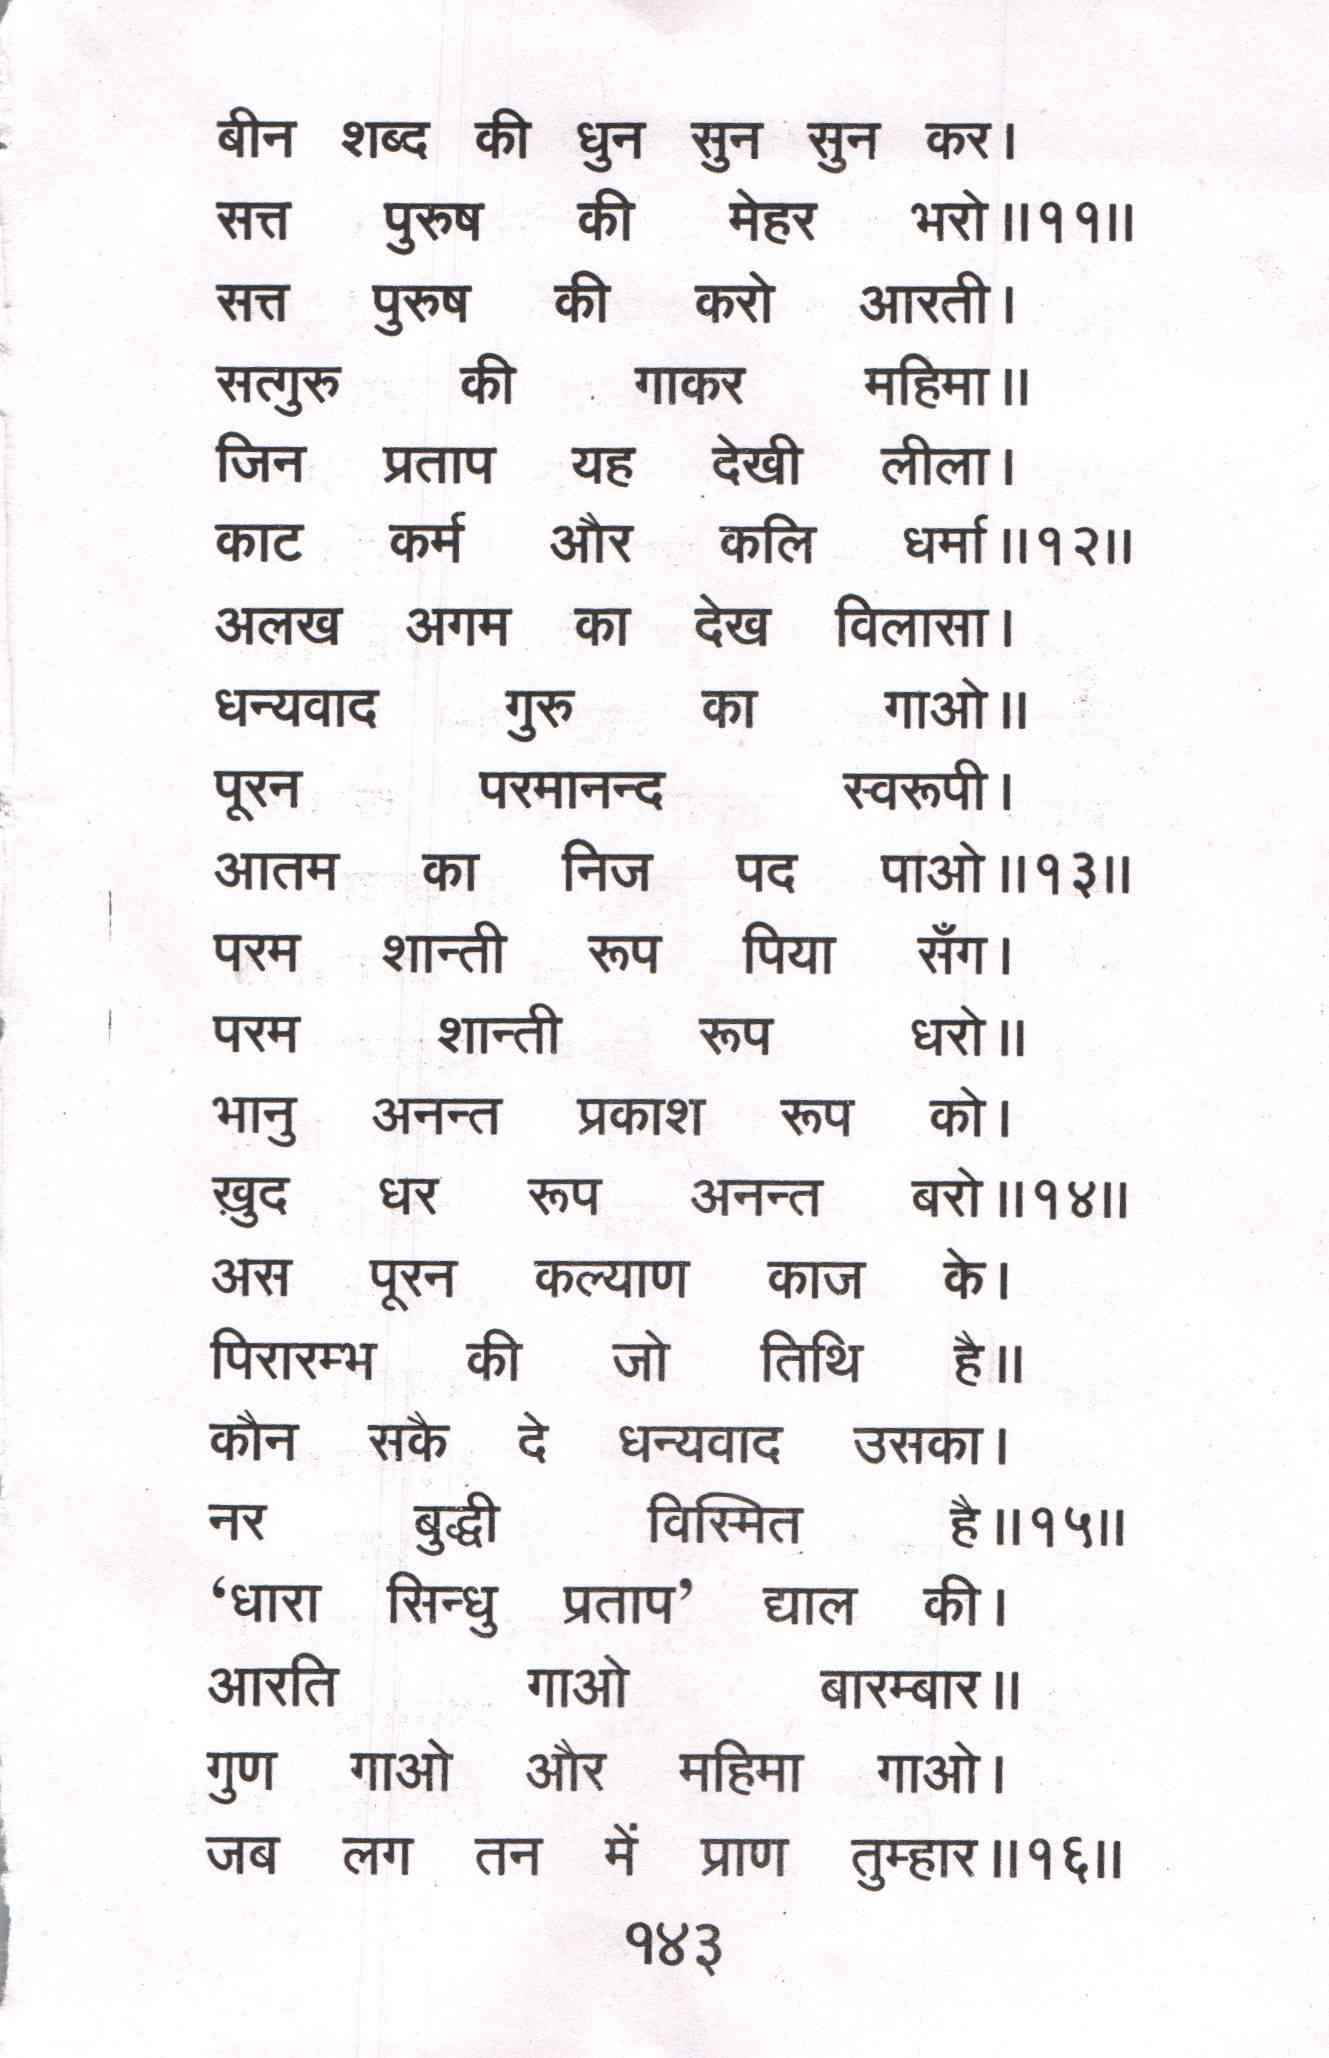 बीन शब्द की धुन सुन सुन कर।
सत्त पुरुष की मेहर भरो॥११॥
सत्त पुरुष की करो आरती।
सत्गुरु की गाकर महिमा॥
जिन प्रताप यह देखी लीला।
काट कर्म और कलि धर्मा॥१२॥
अलख अगम का देख विलासा।
धन्यवाद गुरु का गाओ॥
पूरन परमानन्द स्वरूपी।
आतम का निज पद पाओ॥१३॥
परम शान्ती रूप पिया सँग।
परम शान्ती रूप धरो॥
भानु अनन्त प्रकाश रूप को।
ख़ुद धर रूप अनन्त बरो॥१४॥
अस पूरन कल्याण काज के।
पिरारम्भ की जो तिथि है॥
कौन सकै दे धन्यवाद उसका।
नर बुद्धी विस्मित है॥१५॥
‘धारा सिन्धु प्रताप’ द्याल की।
आरति गाओ बारम्बार॥
गुण गाओ और महिमा गाओ।
जब लग तन में प्राण तुम्हार॥१६॥
१४३